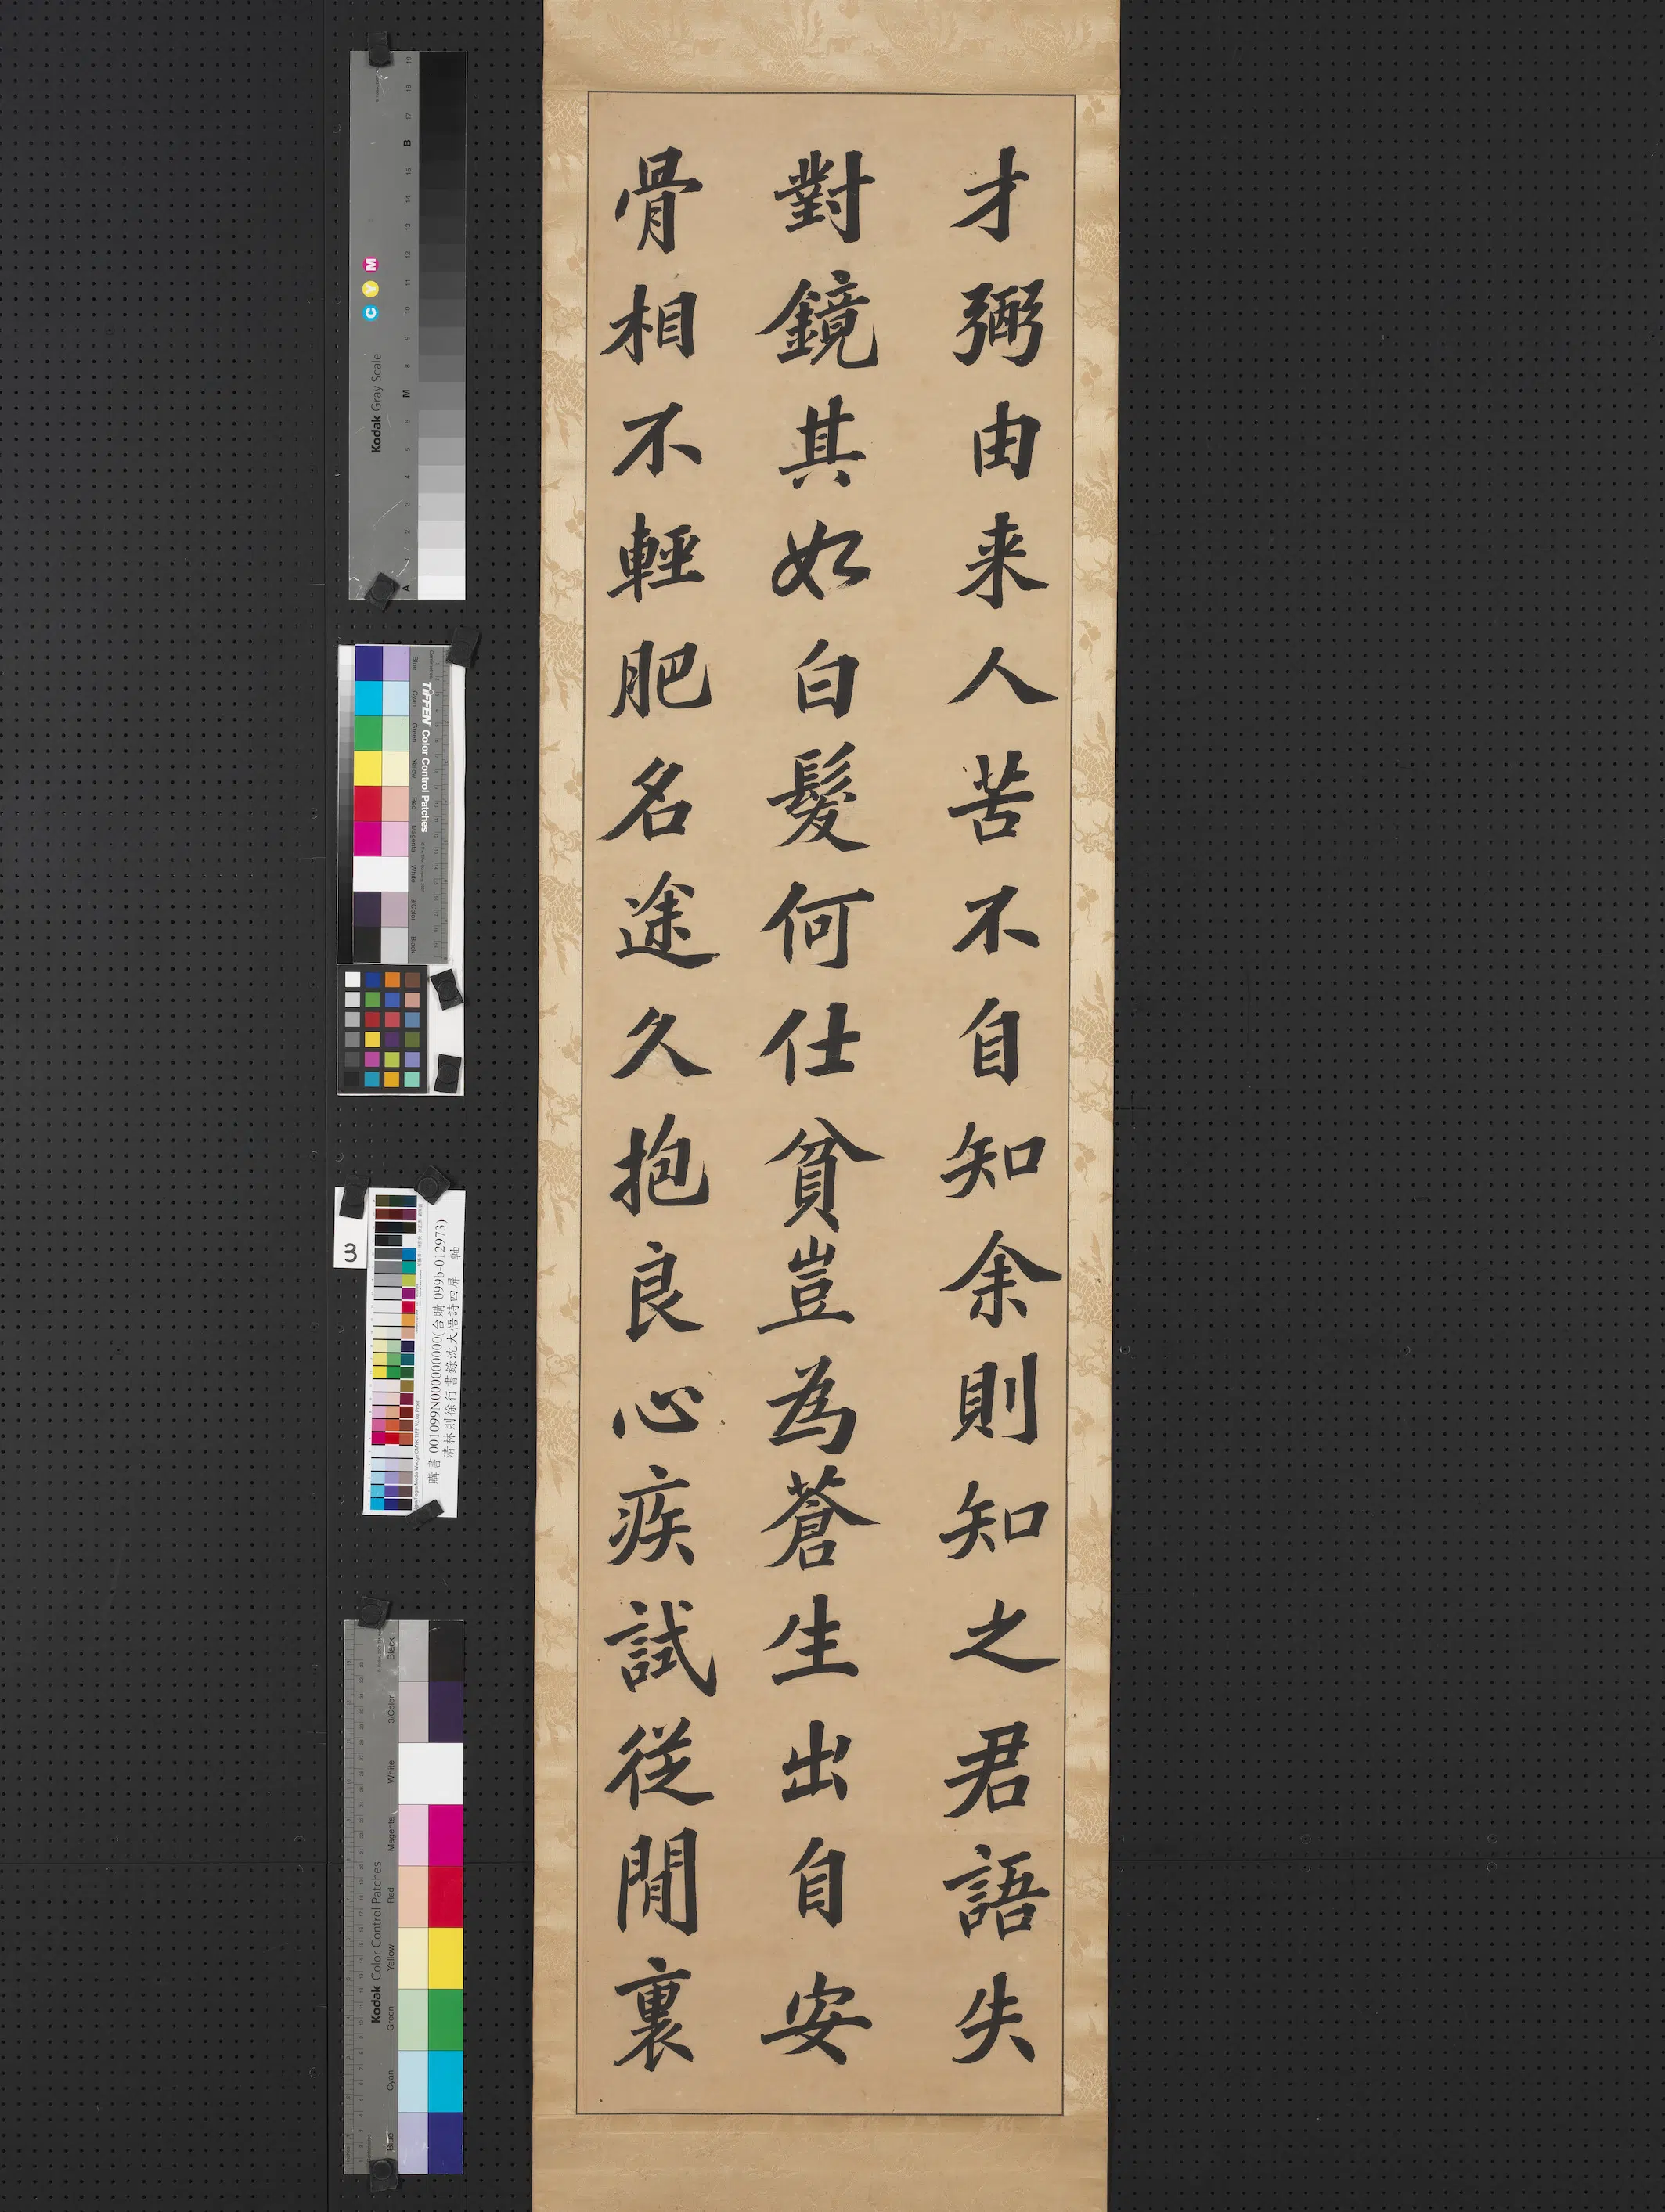 才弼由来人苦不自知余則知之君語失
對鏡其如白髮何仕貧豈為蒼生出自安
骨相不輕肥名途久抱良心疾試從閒裏
Kodak Gray Scale
C Y M
A
M
B
TIFFEN Color Control Patches
Blue
Cyan
Green
Yellow
Red
Magenta
White
3/Color
Black
3
購書 001099N000000000(台購 099b-012973)
清林則徐行書錄沈大悟詩四屏 軸
Kodak Color Control Patches
Black
3/Color
White
Magenta
Red
Yellow
Green
Cyan
Blue